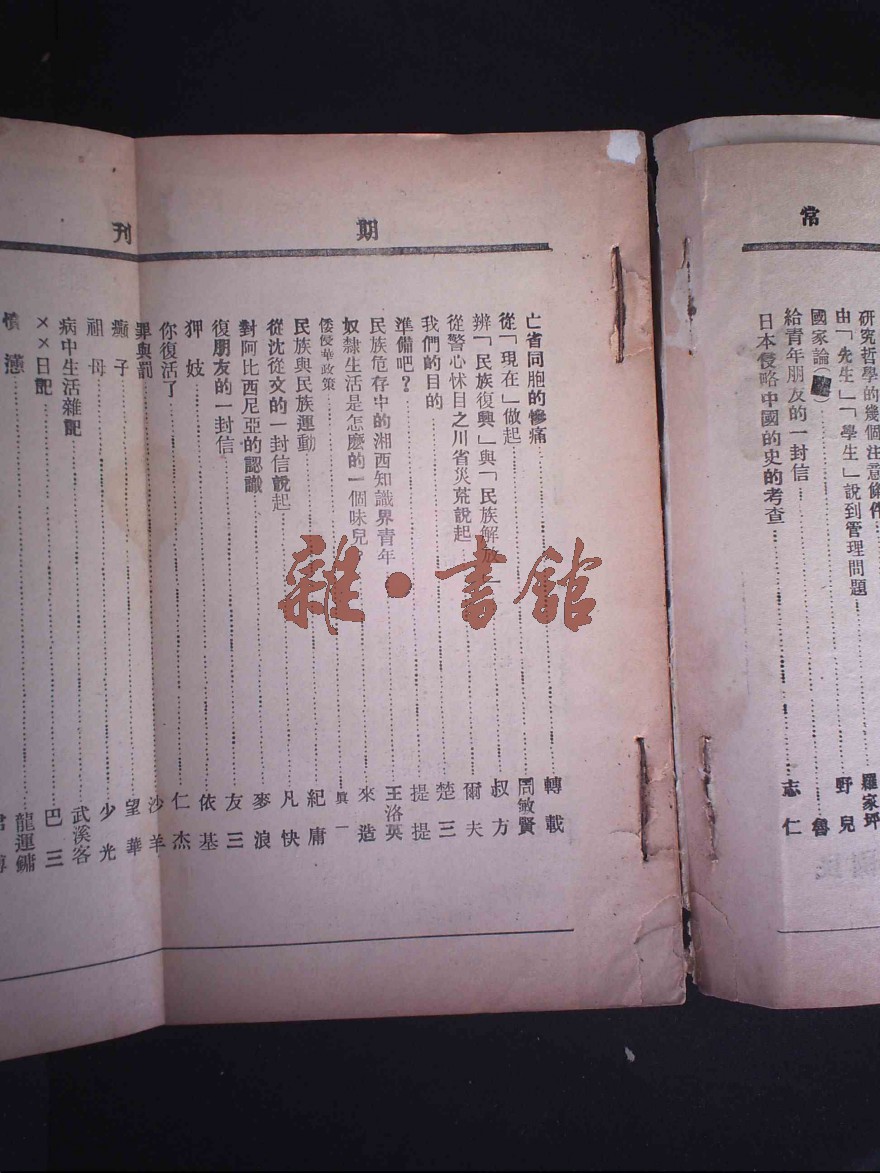 常
研究哲學的幾個注意條件
由「先生」「學生」說到管理問題……羅家坪
國家論……野兒
給青年朋友的一封信……魯
日本侵略中國的史的考查……志仁
期
刊
亡省同胞的慘痛……轉載
從「現在」做起……周敏賢
辨「民族復興」與「民族解放」……叔方
從警心怵目之川省災荒說起……爾夫
我們的目的……楚三
準備吧？……提提
民族危存中的湘西知識界青年……王洛英
奴隸生活是怎麽的一個味兒？……來造
倭侵華政策……眞一
民族與民族運動……紀庸
從沈從文的一封信說起……凡快
對阿比西尼亞的認識……麥浪
復朋友的一封信……友三
狎妓……依基
你復活了……仁杰
罪與罰……沙羊
癲子……望華
祖母……少光
病中生活雜記……武溪客
××日記……巴三
憤懣……龍運鏞
雜·書館